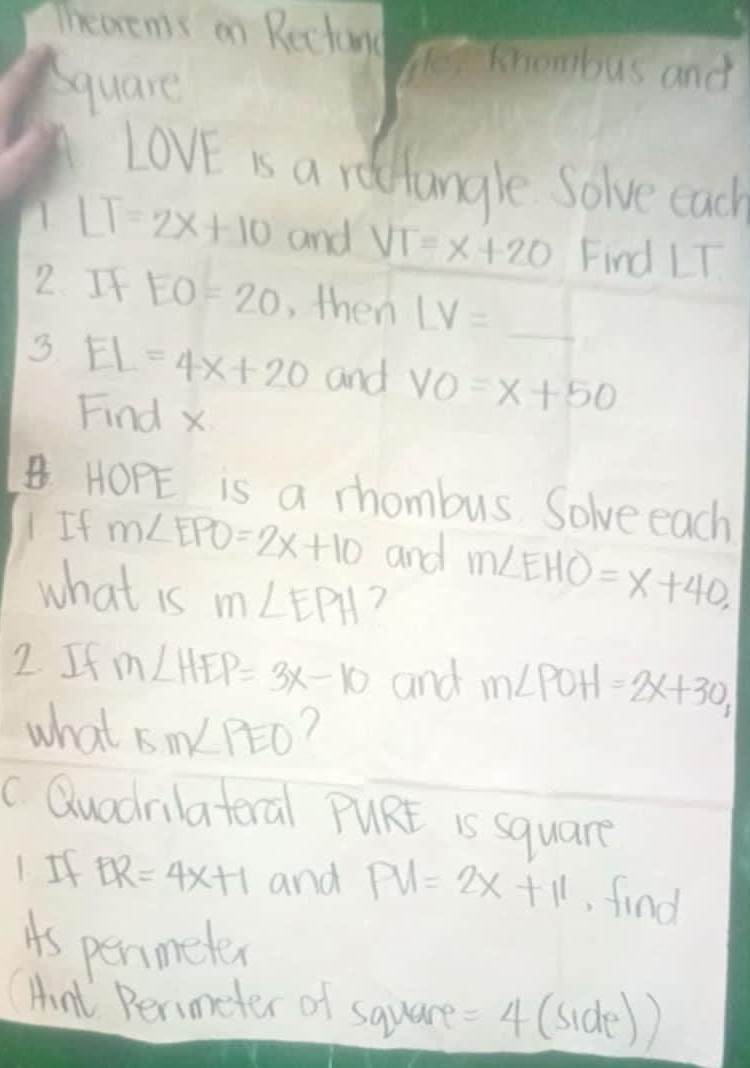 Theorems on Rectangles, Rhombus and
Square
A LOVE is a rectangle. Solve each
1 LT=2X+10 and VT=X+20 Find LT.
2. If EO=20, then LV= ___
3. EL=4X+20 and VO=X+50
Find x.
B HOPE is a rhombus. Solve each
1 If m∠EPO=2X+10 and m∠EHO=X+40,
what is m∠EPH?
2. If m∠HEP=3X-10 and m∠POH=2X+30,
what is m∠PEO?
C. Quadrilateral PURE is square
1 If ER=4X+1 and PU=2X+11, find
its perimeter
(Hint. Perimeter of square=4(side))